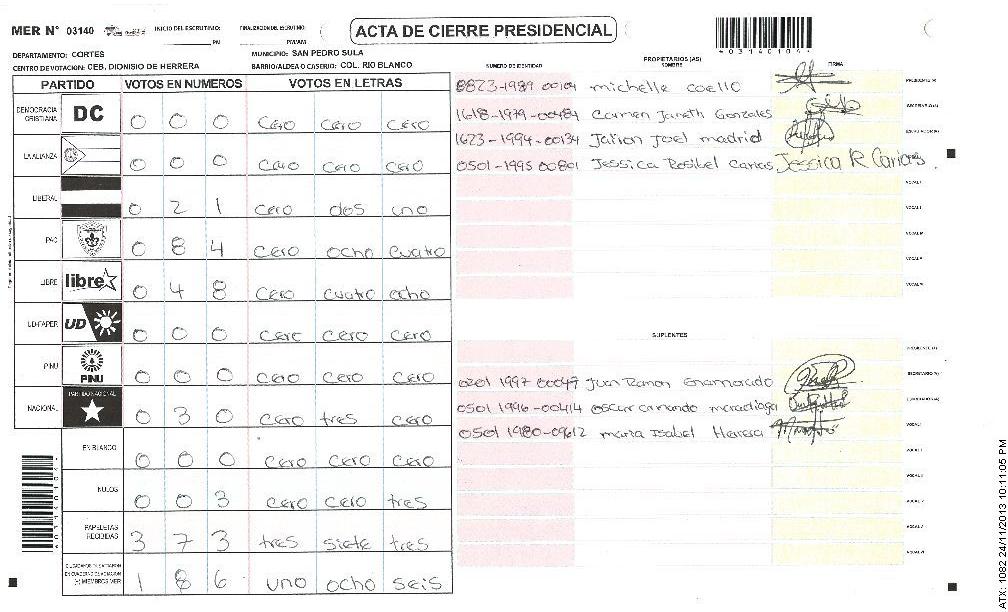 MER N° 03140 INICIO DEL ESCRUTINIO: PM FINALIZACION DEL ESCRUTINIO: PM/AM ACTA DE CIERRE PRESIDENCIAL
DEPARTAMENTO: CORTES MUNICIPIO: SAN PEDRO SULA
CENTRO DE VOTACION: CEB. DIONISIO DE HERRERA BARRIO/ALDEA O CASERIO: COL. RIO BLANCO
4 0 3 1 4 0 1 0 4
PARTIDO VOTOS EN NUMEROS VOTOS EN LETRAS
DEMOCRACIA CRISTIANA DC 0 0 0 cero cero cero
LA ALIANZA 0 0 0 cero cero cero
LIBERAL 0 2 1 cero dos uno
PAC 0 8 4 cero ocho cuatro
LIBRE libre 0 4 8 cero cuatro ocho
UD-FAPER UD 0 0 0 cero cero cero
PINU PINU 0 0 0 cero cero cero
NACIONAL PARTIDO NACIONAL 0 3 0 cero tres cero
EN BLANCO 0 0 0 cero cero cero
NULOS 0 0 3 cero cero tres
PAPELETAS RECIBIDAS 3 7 3 tres siete tres
(+) MIEMBROS MER 1 8 6 uno ocho seis
PROPIETARIOS (AS)
NUMERO DE IDENTIDAD NOMBRE FIRMA
1989 00104 michelle coello PRESIDENTE (A)
1618-1979-00484 Carmen Janeth Gonzales SECRETARIO (A)
1623-1994-00134 Joel madrid ESCRUTADOR (A)
0501-1995 00801 Jessica Rosibel Carias Jessica R Carias VOCAL I
VOCAL II
VOCAL III
VOCAL IV
VOCAL V
SUPLENTES
PRESIDENTE (A)
1997 00047 Juan Ramon Enamorado SECRETARIO (A)
0501 1996-00414 oscar maradiaga ESCRUTADOR (A)
0501 1980-09612 maria Isabel Herrera VOCAL I
ATX: 1082 24/11/2013 10:11:05 PM